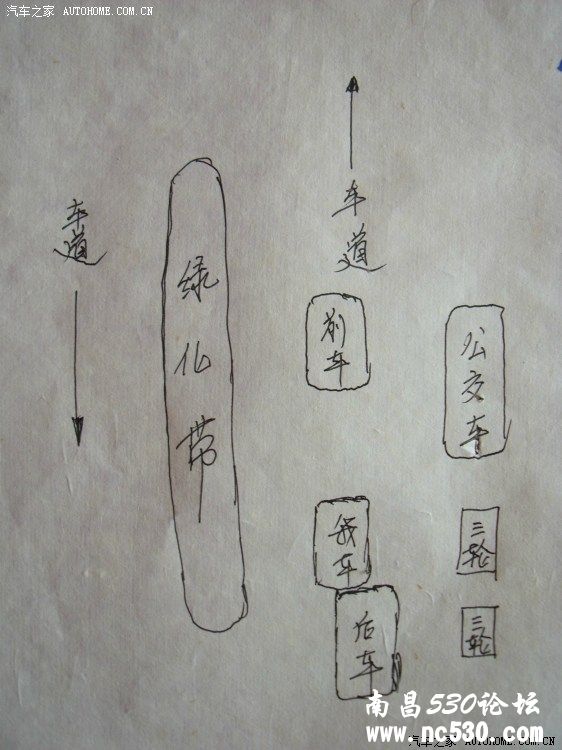 汽车之家 AUTOHOME.COM.CN
车道
绿化带
车道
前车
公交车
我车
三轮
后车
三轮
南昌530论坛
www.nc530.com
汽车之家 AUTOHOME.COM.CN